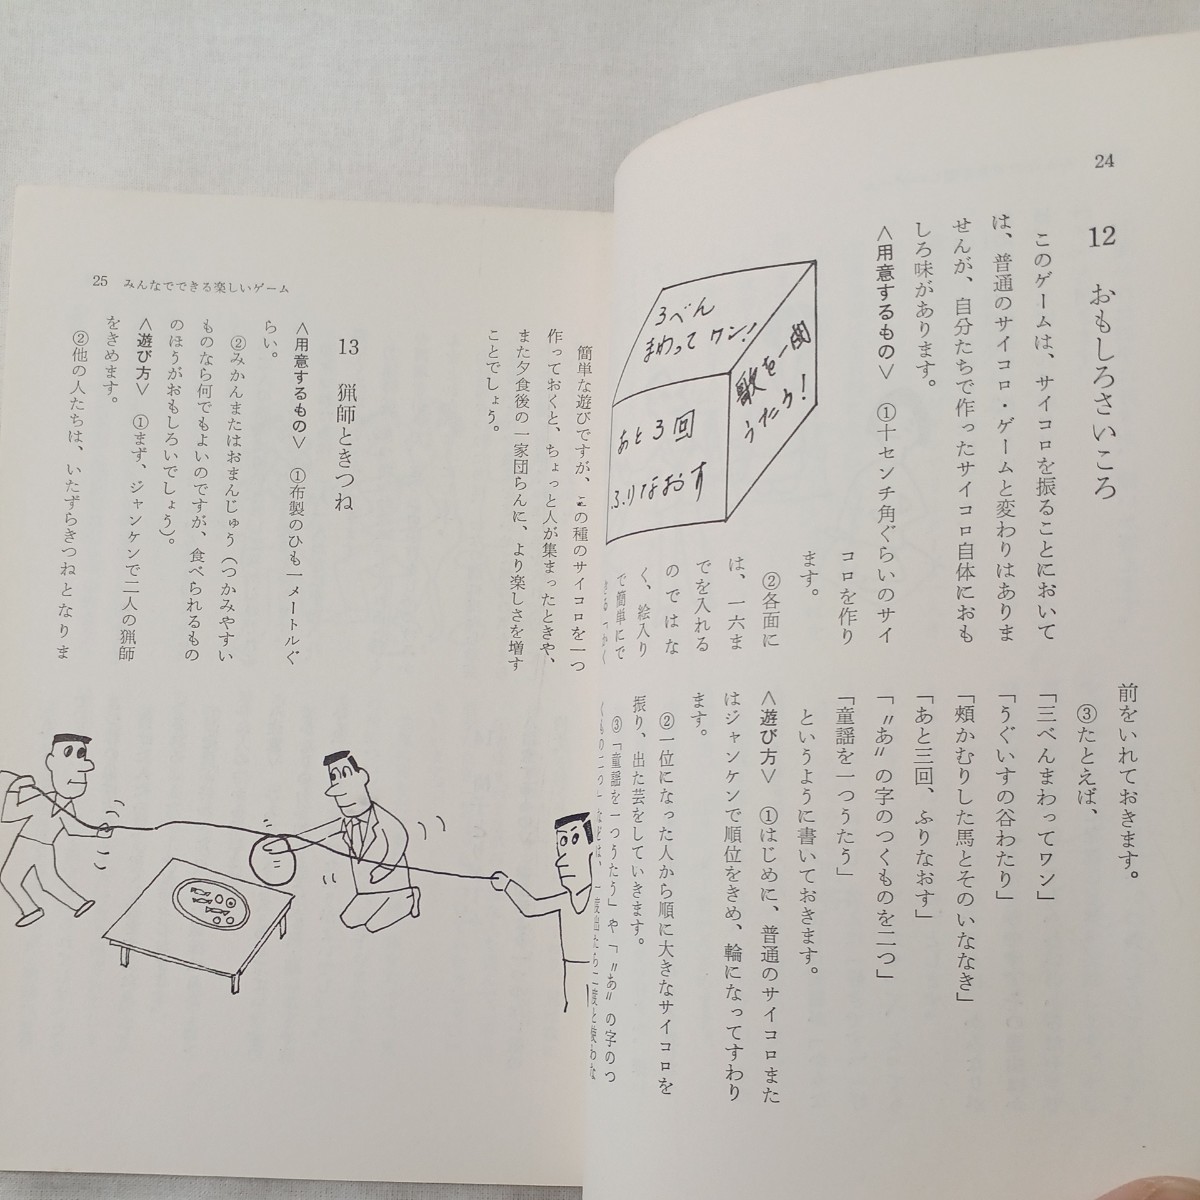 24
12 おもしろさいころ
このゲームは、サイコロを振ることにおいて
は、普通のサイコロ・ゲームと変わりはありま
せんが、自分たちで作ったサイコロ自体におも
しろ味があります。
＜用意するもの＞ ①十センチ角ぐらいのサイ
コロを作り
ます。
②各面に
は、一六ま
でを入れる
のではな
く、絵入り
で簡単にで
3べん
まわってワン!!
あと3回
ふりなおす
歌を一曲
うたう!
前をいれておきます。
③たとえば、
「三べんまわってワン」
「うぐいすの谷わたり」
「頰かむりした馬とそのいななき」
「あと三回、ふりなおす」
「〝あ〟の字のつくものを二つ」
「童謡を一つうたう」
というように書いておきます。
＜遊び方＞ ①はじめに、普通のサイコロまた
はジャンケンで順位をきめ、輪になってすわり
ます。
②一位になった人から順に大きなサイコロを
振り、出た芸をしていきます。
③「童謡を一つうたう」や「〝あ〟の字のつ
簡単な遊びですが、この種のサイコロを一つ
作っておくと、ちょっと人が集まったときや、
また夕食後の一家団らんに、より楽しさを増す
ことでしょう。
13 猟師ときつね
＜用意するもの＞ ①布製のひも一メートルぐ
らい。
②みかんまたはおまんじゅう（つかみやすい
ものなら何でもよいのですが、食べられるもの
のほうがおもしろいでしょう）。
＜遊び方＞ ①まず、ジャンケンで二人の猟師
をきめます。
②他の人たちは、いたずらきつねとなりま
25 みんなでできる楽しいゲーム